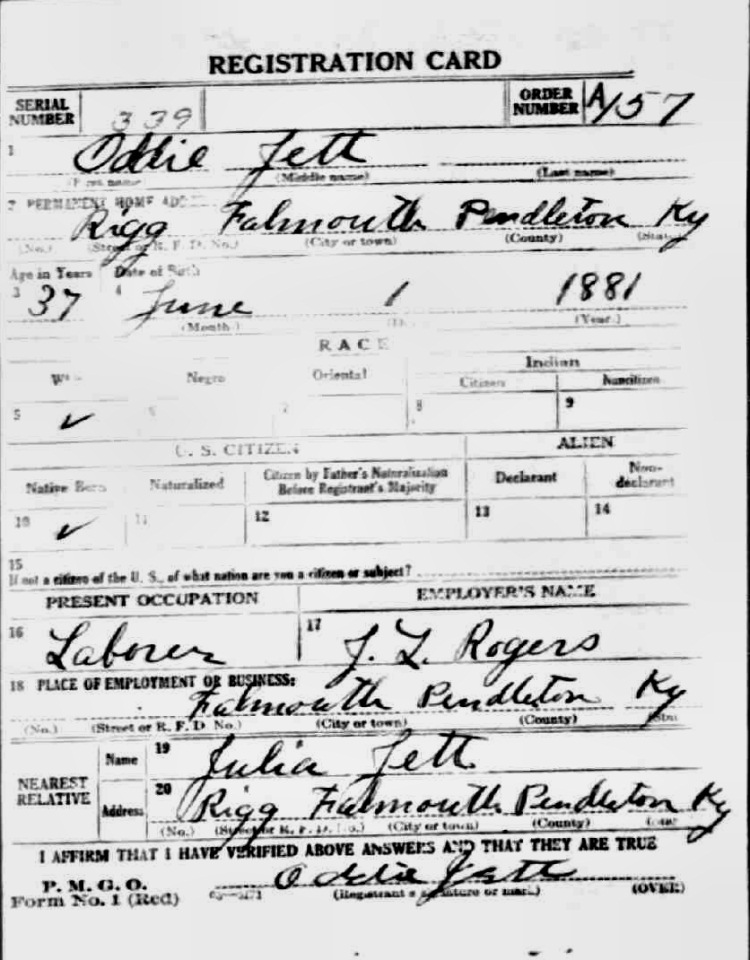 REGISTRATION CARD
SERIAL NUMBER 339 ORDER NUMBER A157
1 Oddie Jett
(First name) (Middle name) (Last name)
2 PERMANENT HOME ADD
Rigg Falmouth Pendleton Ky
(No.) (Street or R. F. D. No.) (City or town) (County)
Age in Years Date of Birth
3 37 4 June 1 1881
(Month.) (Year.)
RACE
Negro Oriental Indian
Citizen Noncitizen
5 ✓ 6 7 8 9
U. S. CITIZEN ALIEN
Native Born Naturalized Citizen by Father's Naturalization Before Registrant's Majority Declarant Non-declarant
10 ✓ 11 12 13 14
15
If not a citizen of the U. S., of what nation are you a citizen or subject?
PRESENT OCCUPATION EMPLOYER'S NAME
16 Laborer 17 J. L. Rogers
18 PLACE OF EMPLOYMENT OR BUSINESS:
Falmouth Pendleton Ky
(No.) (Street or R. F. D. No.) (City or town) (County)
NEAREST RELATIVE Name 19 Julia Jett
Address 20 Rigg Falmouth Pendleton Ky
(No.) (Street or R. F. D. No.) (City or town) (County)
I AFFIRM THAT I HAVE VERIFIED ABOVE ANSWERS AND THAT THEY ARE TRUE
Oddie Jett
P. M. G. O.
Form No. 1 (Red) (Registrant's signature or mark.) (OVER)